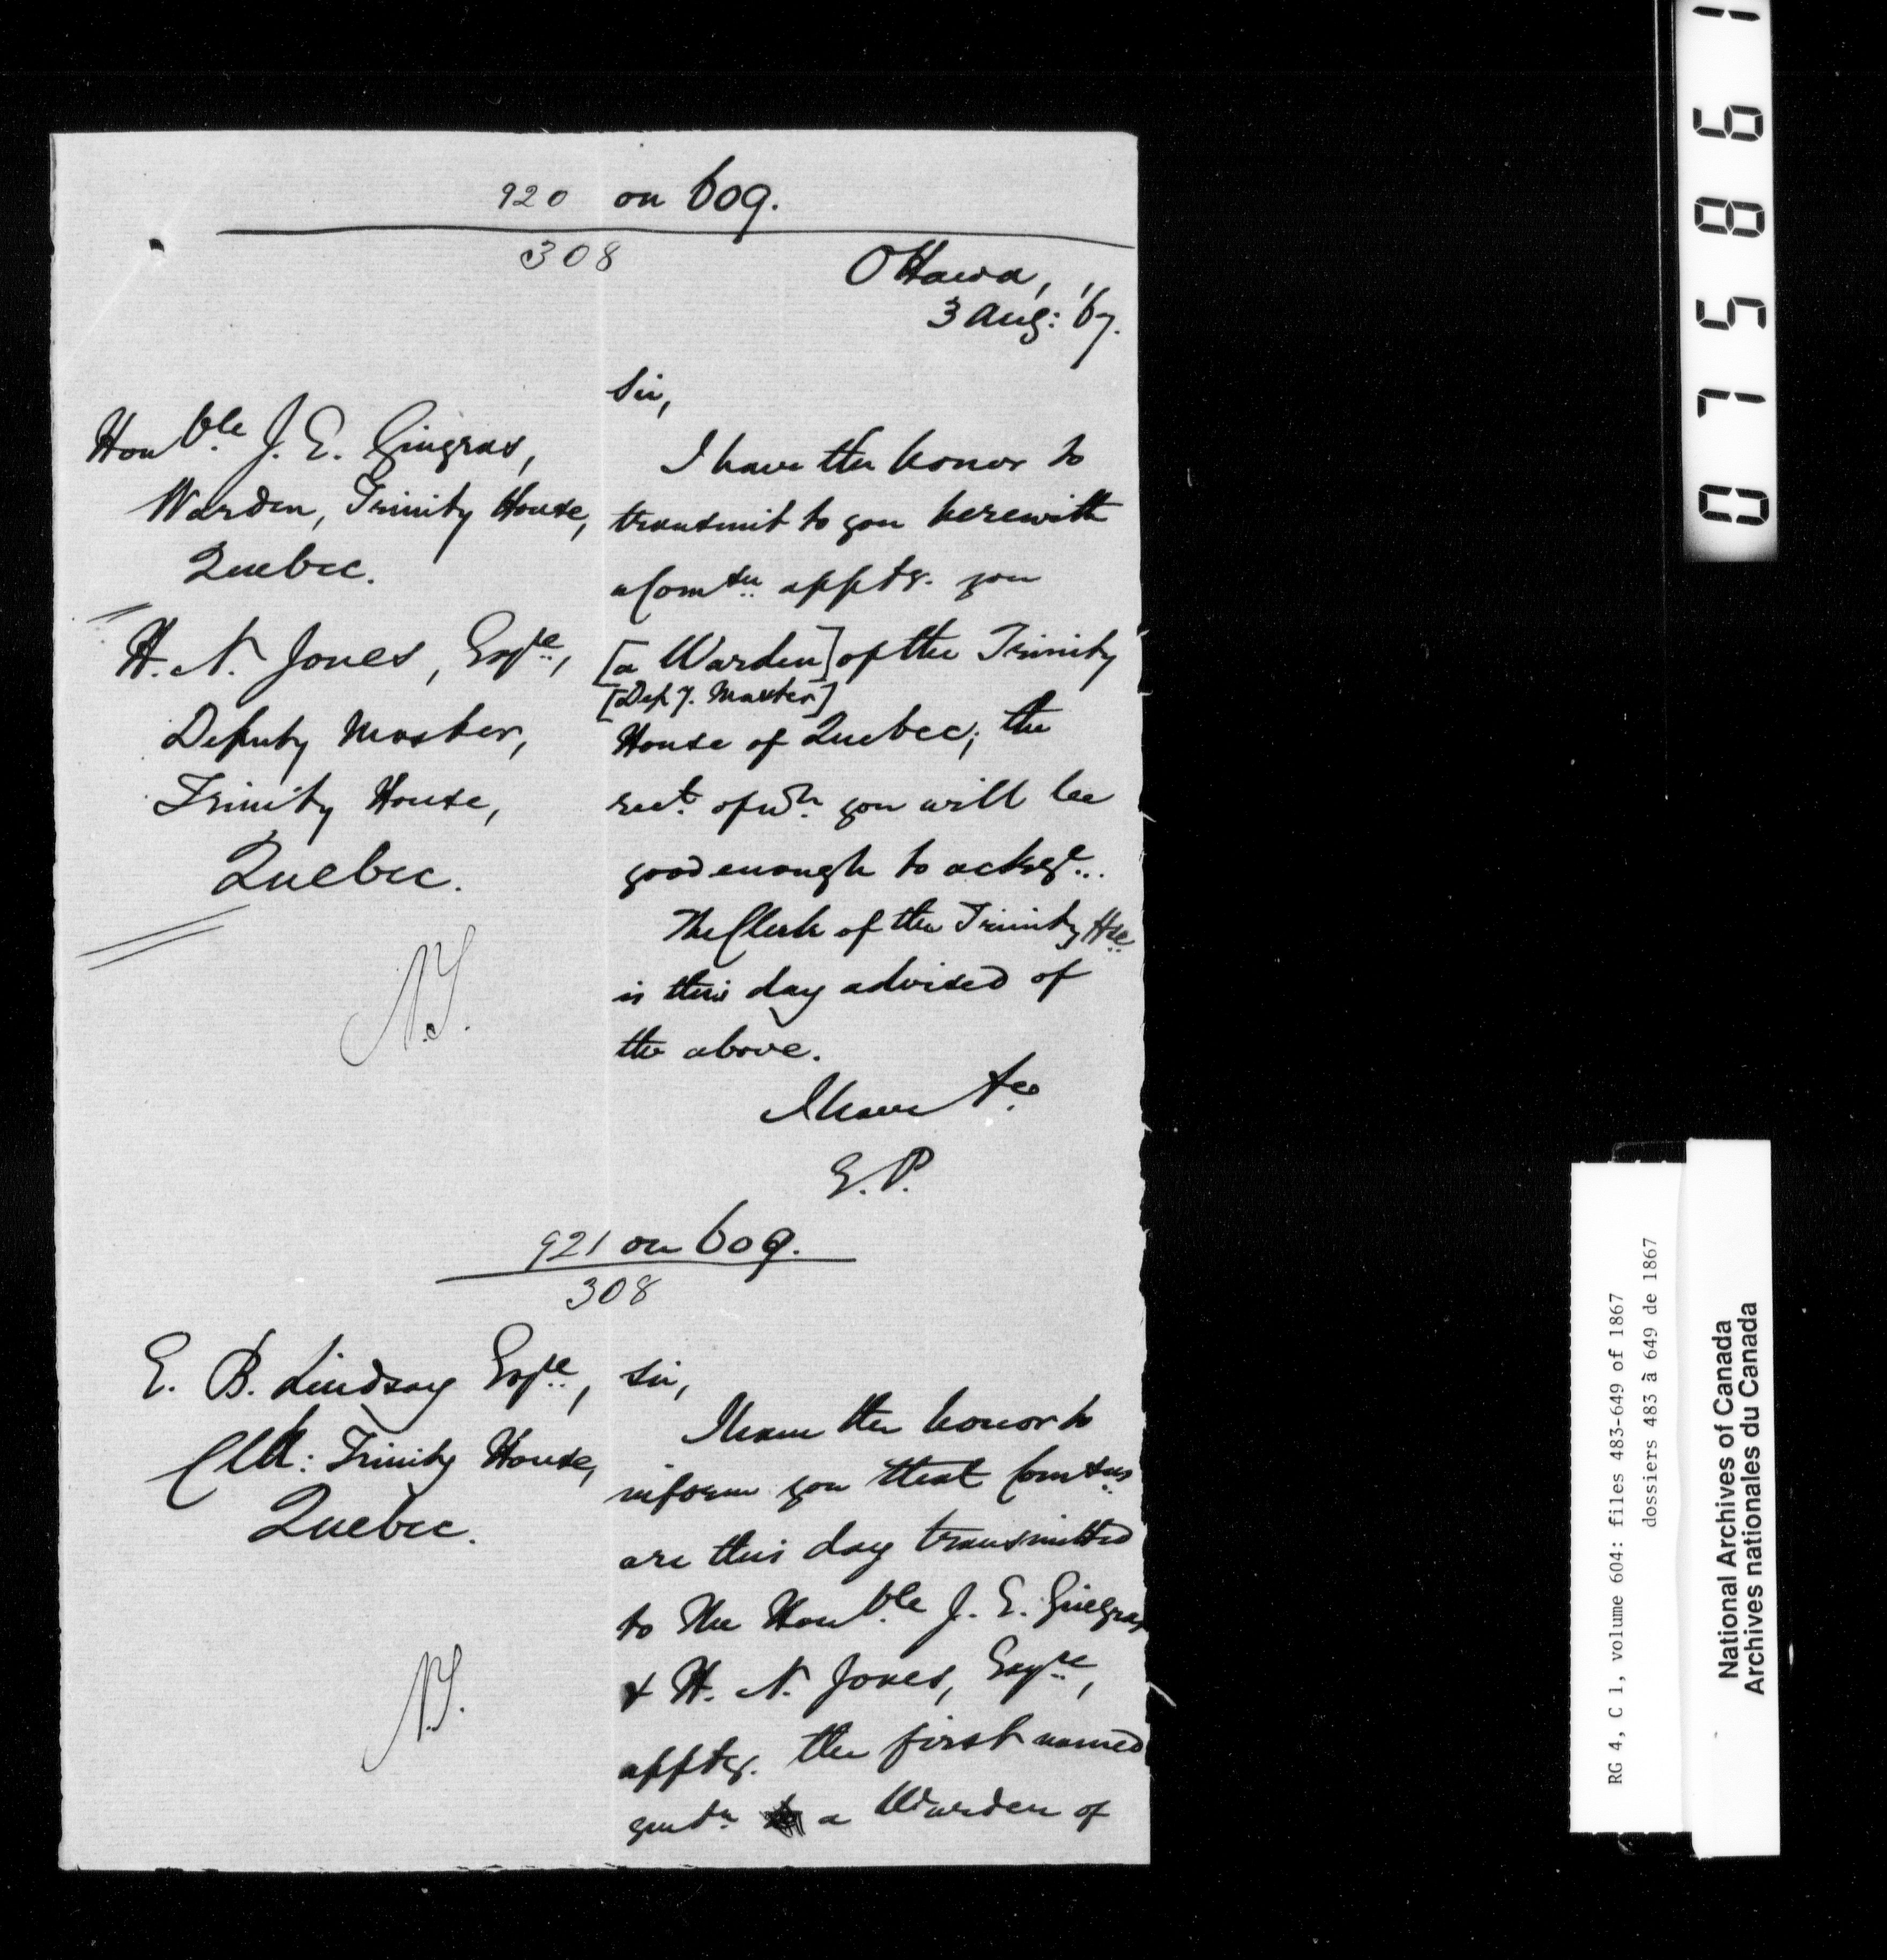 920 on 609.
308
Ottawa,
3 Aug: '67.
Honble. J. E. Gingras,
Warden, Trinity House,
Quebec.
H. N. Jones, Esqre.,
Deputy Master,
Trinity House,
Quebec.
N.S.
Sir,
I have the honor to
transmit to you herewith
a Comsn. apptg. you
[a Warden] of the Trinity
[Depy. Master]
House of Quebec; the
rect. of wh. you will be
good enough to ackge..
The Clerk of the Trinity Hse.
is this day advised of
the above.
I have &c.
E. P.
921 on 609.
308
E. B. Lindsay Esqre.,
Clk: Trinity House,
Quebec.
N.S.
Sir,
I have the honor to
inform you that Comsns.
are this day transmitted
to the Honble. J. E. Gingras
& H. N. Jones, Esqre.,
apptg. the first named
gentn. a Warden of
075861
RG 4, C 1, volume 604: files 483-649 of 1867
dossiers 483 à 649 de 1867
National Archives of Canada
Archives nationales du Canada